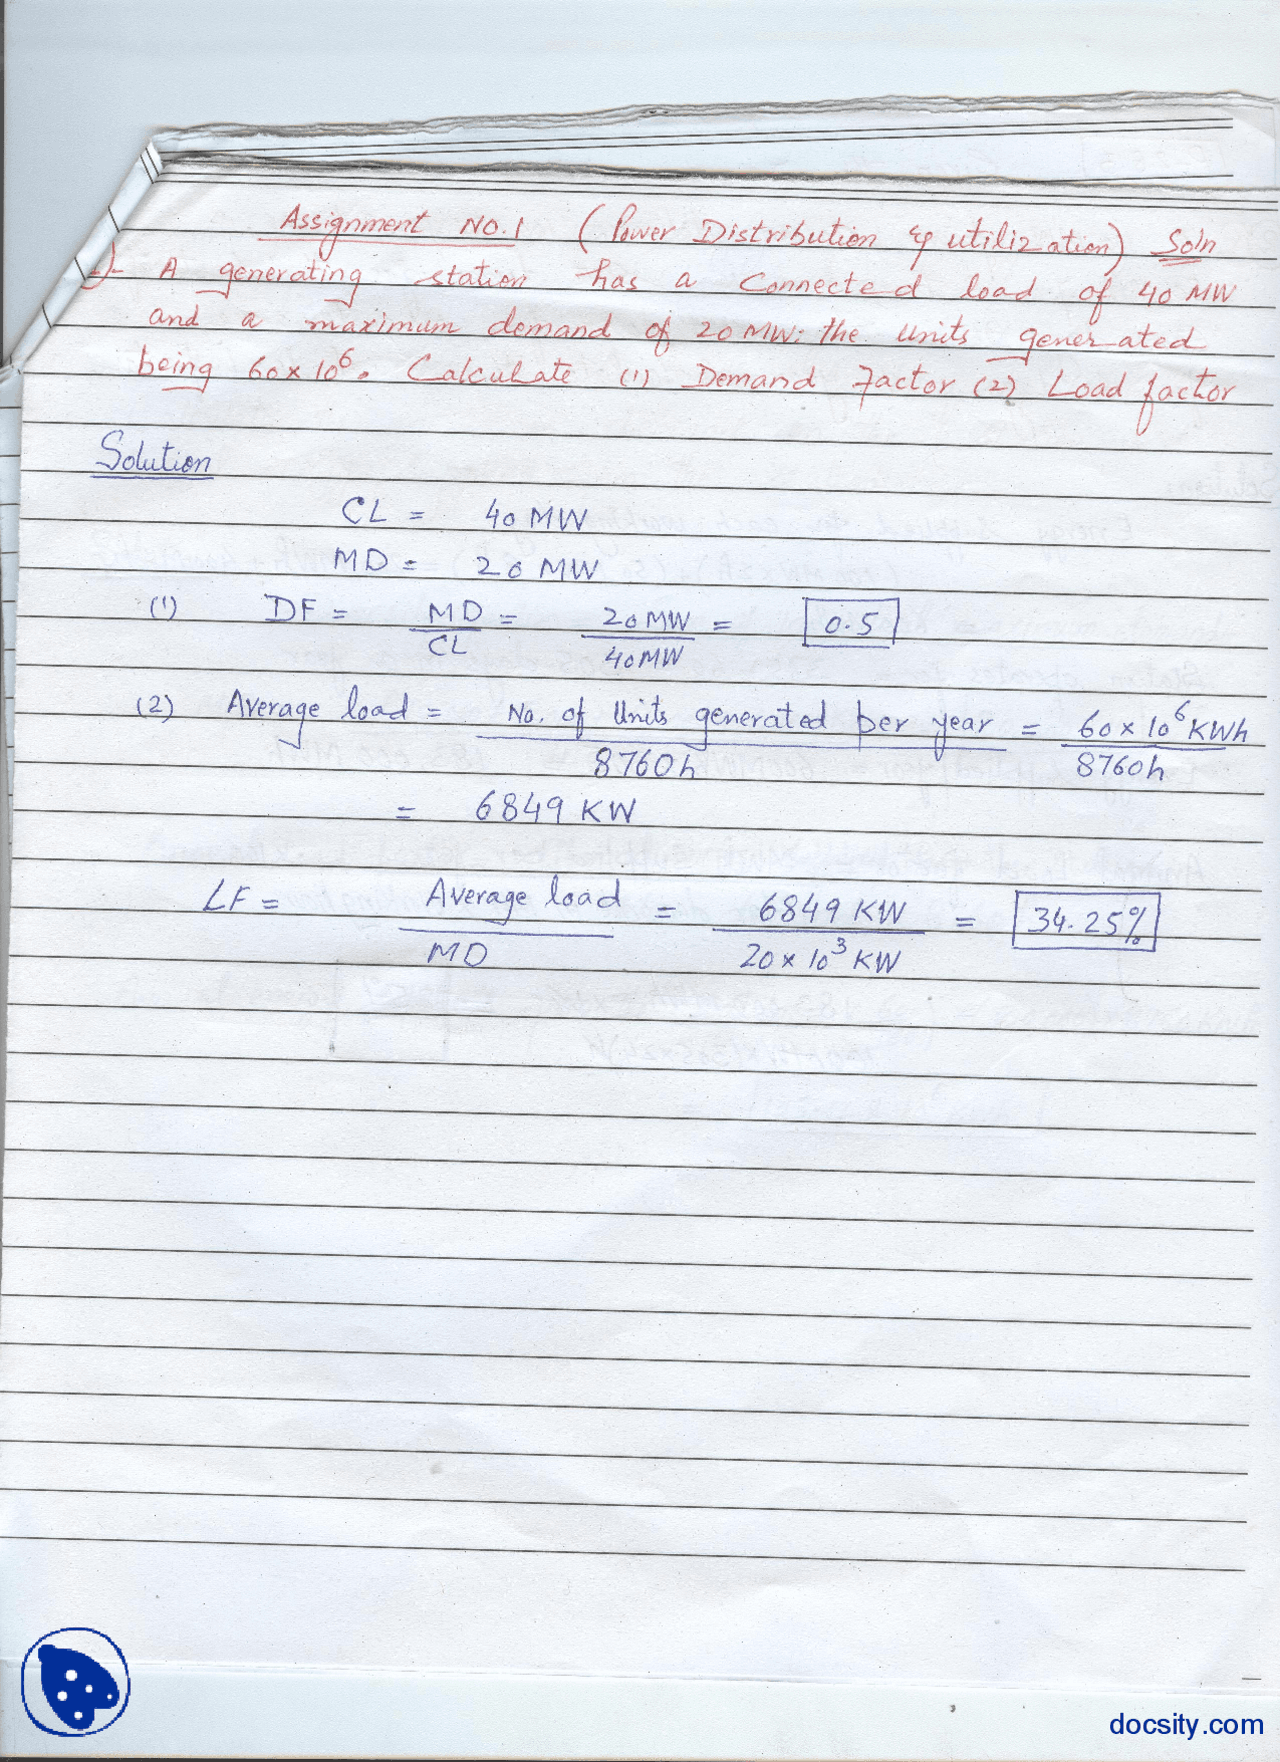 Assignment NO.1 (Power Distribution & utilization) Soln
1)- A generating station has a Connected load of 40 MW
and a maximum demand of 20 MW: the units generated
being 60×10⁶. Calculate (1) Demand Factor (2) Load factor
Solution
CL = 40 MW
MD = 20 MW
(1) DF = MD/CL = 20MW/40MW = 0.5
(2) Average load = No. of Units generated per year/8760h = 60×10⁶KWh/8760h
= 6849 KW
LF = Average load/MD = 6849 KW/20×10³KW = 34.25%
docsity.com